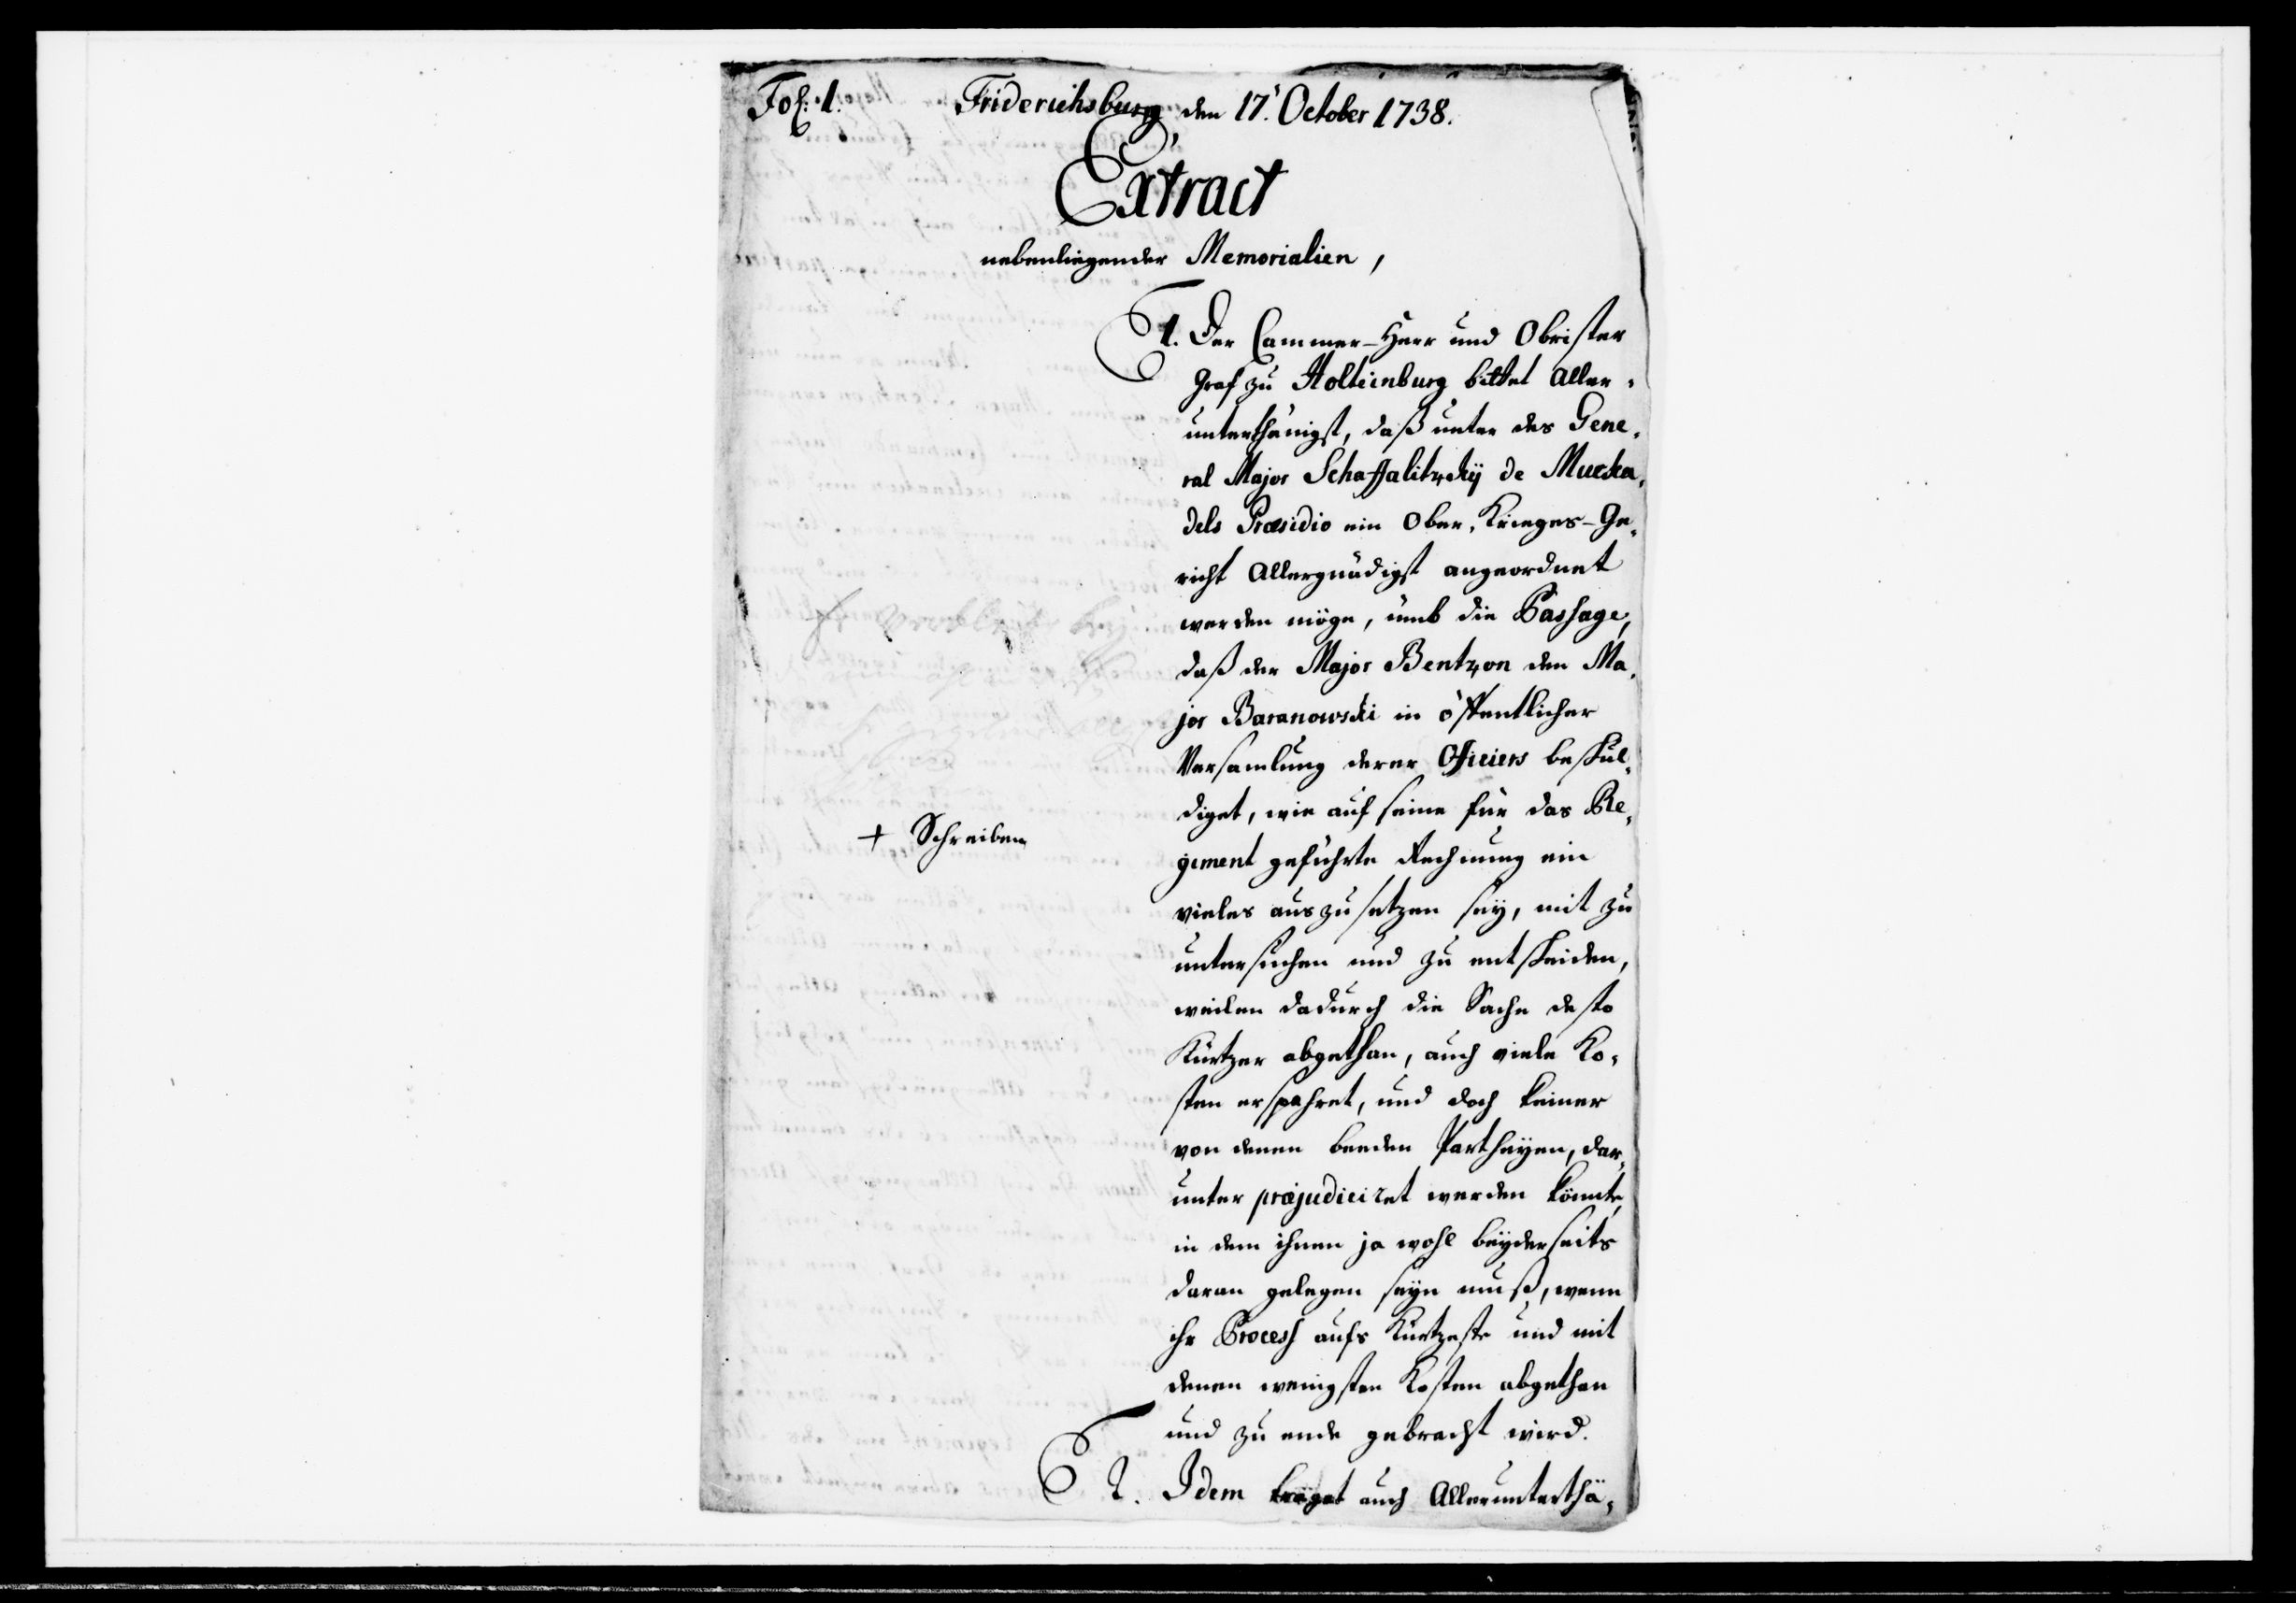 Fol: 1.
Friderichsburg, den 17. October 1738.
Extract
nebenliegender Memorialien,
1. Der Cammer-Herr und Obrister
Graf zu Holsteinburg bittet Aller-
unterthänigst, daß unter des Gene-
ral Major Schaffalitzkÿ de Mucka-
dels Præsidio ein Ober-Krieges-Ge-
richt Allergnädigst angeordnet
werden möge, umb die Passage,
daß der Major Bentzon den Ma-
jor Baranowski in öffentlicher
Versamlung derer Officiers beskul-
diget, wie auf seine für das Re-
giment geführte Rechnung ein
+ Schreiben
vieles auszusetzen seÿ, mit zu
untersuchen und zu entskeiden,
weilen dadurch die Sache desto
Kürtzer abgethan, auch viele Ko-
sten erspahret, und doch keiner
von denen beeden Partheÿen, dar-
unter præjudiciret werden könnte,
in dem ihnen ja wohl beÿderseits
daran gelegen seÿn muß, wenn
ihr Process aufs Kürtzeste und mit
denen wenigsten Kosten abgethan
und zu ende gebracht wird.
2. Idem fraget auch Allerunterthä-